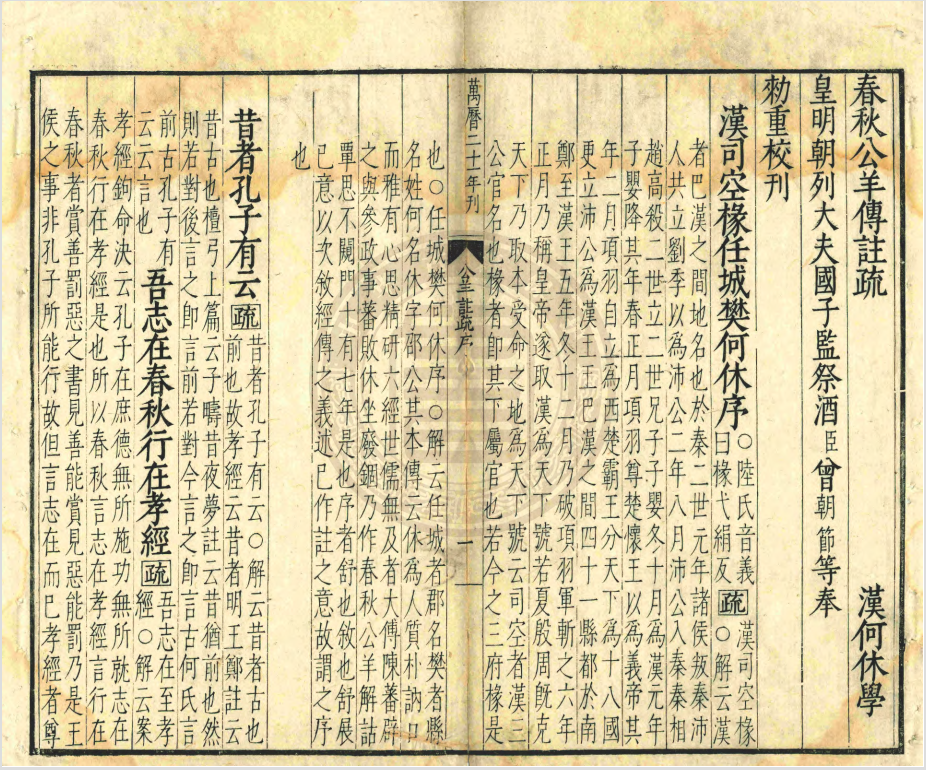 春秋公羊傳註疏
漢何休學
皇明朝列大夫國子監祭酒臣曾朝節等奉
勑重校刊
漢司空椽任城樊何休序
○陸氏音義
曰椽弋絹反
疏
漢司空椽
○解云漢
者巴漢之間地名也於秦二世元年諸侯叛秦沛
人共立劉季以為沛公二年八月沛公入秦秦相
趙高殺二世立二世兄子子嬰冬十月為漢元年
子嬰降其年春正月項羽尊楚懷王以為義帝其
年二月項羽自立為西楚霸王分天下為十八國
更立沛公為漢王王巴漢之間四十一縣都於南
鄭至漢王五年冬十二月乃破項羽軍斬之六年
正月乃稱皇帝遂取漢為天下號若夏殷周旣克
天下乃取本受命之地為天下號云司空者漢三
公官名也椽者即其下屬官也若今之三府椽是
萬曆二十一年刊
公羊註疏序
一
也○任城樊何休序○解云任城者郡名樊者縣
名姓何名休字邵公其本傳云休為人質朴訥口
而雅有心思精研六經世儒無及者大傅陳蕃辟
之與參政事蕃敗休坐廢錮乃作春秋公羊解詁
覃思不闚門十有七年是也序者舒也敘也舒展
已意以次敘經傳之義述已作註之意故謂之序
也
昔者孔子有云
疏
昔者孔子有云○解云昔者古也
前也故孝經云昔者明王鄭註云
昔古也檀弓上篇云予疇昔夜夢註云昔猶前也然
則若對後言之即言前若對今言之即言古何氏言
前古孔子有
云云言也
吾志在春秋行在孝經
疏
吾志在至孝
經○解云案
孝經鉤命決云孔子在庶德無所施功無所就志在
春秋行在孝經是也所以春秋言志在孝經言行在
春秋者賞善罰惡之書見善能賞見惡能罰乃是王
侯之事非孔子所能行故但言志在而已孝經者尊